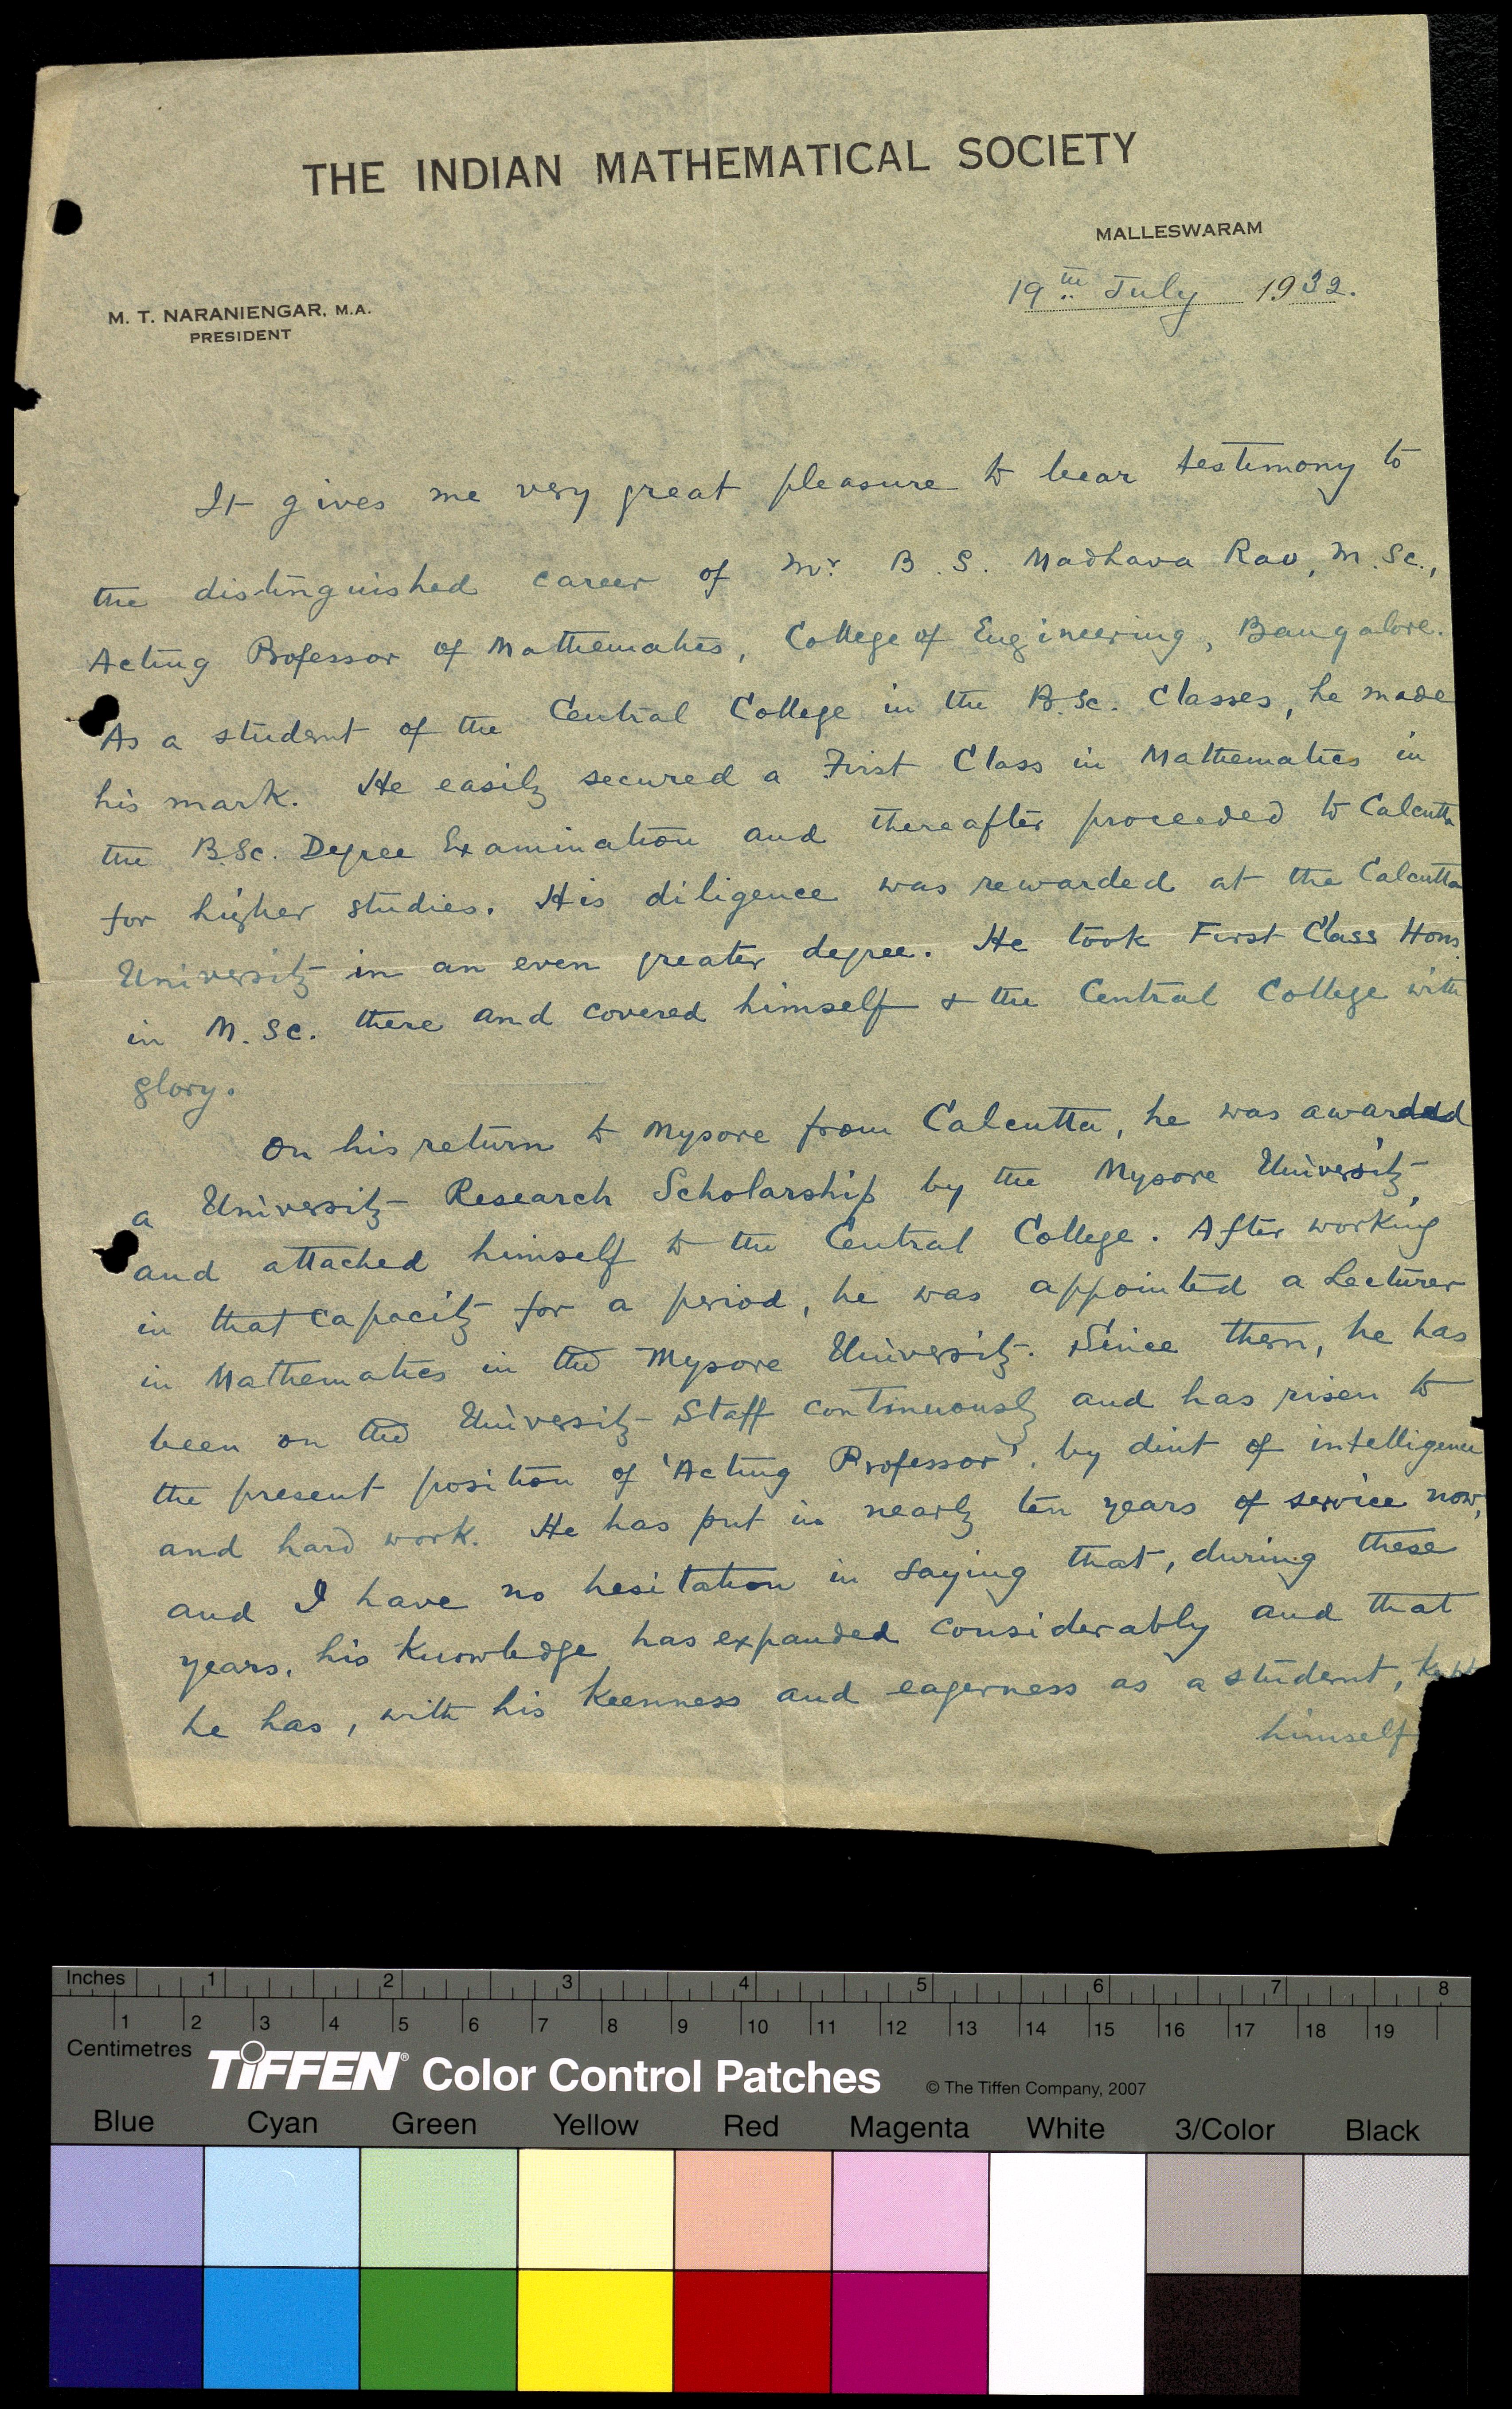 THE INDIAN MATHEMATICAL SOCIETY
MALLESWARAM
19th July 1932.
M. T. NARANIENGAR, M.A.
PRESIDENT
It gives me very great pleasure to bear testimony to
the distinguished career of Mr. B. S. Madhava Rao, M.Sc.,
Acting Professor of Mathematics, College of Engineering, Bangalore.
As a student of the Central College in the B.Sc. Classes, he made
his mark. He easily secured a First Class in Mathematics in
the B.Sc. Degree Examination and thereafter proceeded to Calcutta
for higher studies. His diligence was rewarded at the Calcutta
University in an even greater degree. He took First Class Hons.
in M.Sc. there and covered himself & the Central College with
glory.
On his return to Mysore from Calcutta, he was awarded
a University Research Scholarship by the Mysore University,
and attached himself to the Central College. After working
in that capacity for a period, he was appointed a Lecturer
in Mathematics in the Mysore University. Since then, he has
been on the University Staff continuously and has risen to
the present position of 'Acting Professor', by dint of intelligence
and hard work. He has put in nearly ten years of service now,
and I have no hesitation in saying that, during these
years, his knowledge has expanded considerably and that
he has, with his keenness and eagerness as a student,
himself
Inches 1 2 3 4 5 6 7 8
1 2 3 4 5 6 7 8 9 10 11 12 13 14 15 16 17 18 19
Centimetres
TIFFEN® Color Control Patches © The Tiffen Company, 2007
Blue Cyan Green Yellow Red Magenta White 3/Color Black